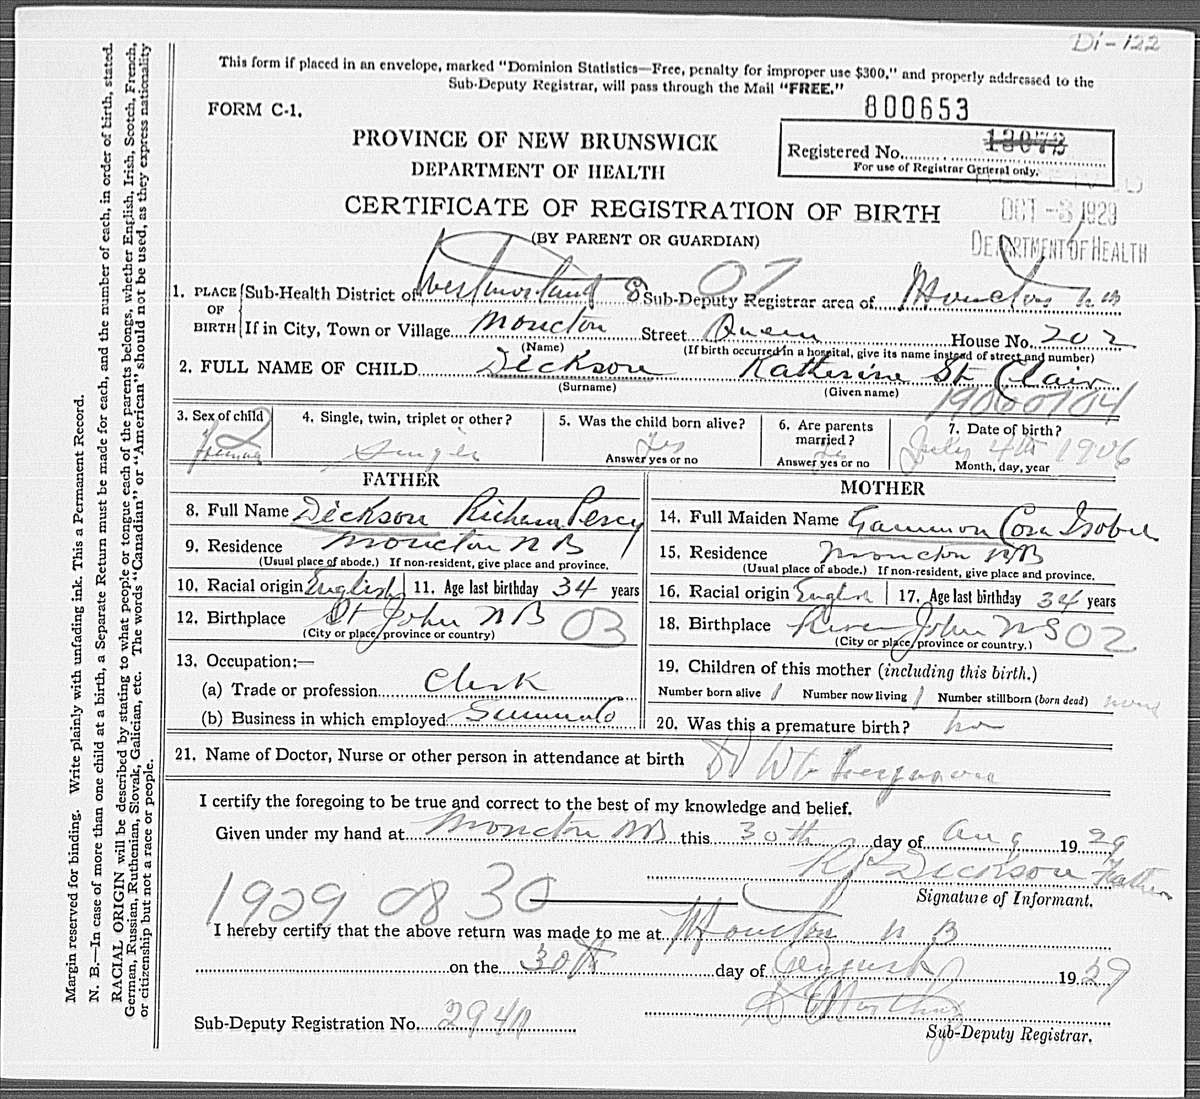 Di-122
This form if placed in an envelope, marked "Dominion Statistics—Free, penalty for improper use $300," and properly addressed to the
Sub-Deputy Registrar, will pass through the Mail "FREE."
FORM C-1.
800653
PROVINCE OF NEW BRUNSWICK
DEPARTMENT OF HEALTH
Registered No. 13073
For use of Registrar General only.
CERTIFICATE OF REGISTRATION OF BIRTH
OCT -3 1929
DEPARTMENT OF HEALTH
(BY PARENT OR GUARDIAN)
07
1. PLACE OF BIRTH
Sub-Health District of Westmorland Sub-Deputy Registrar area of Moncton N B
If in City, Town or Village Moncton Street Queen House No. 202
(Name) (If birth occurred in a hospital, give its name instead of street and number)
2. FULL NAME OF CHILD Dickson Katherine St Clair
(Surname) (Given name)
19060704
3. Sex of child Female
4. Single, twin, triplet or other? Single
5. Was the child born alive? Yes
Answer yes or no
6. Are parents married? Yes
Answer yes or no
7. Date of birth? July 4th 1906
Month, day, year
FATHER
8. Full Name Dickson Richard Percy
9. Residence Moncton N B
(Usual place of abode.) If non-resident, give place and province.
10. Racial origin English 11. Age last birthday 34 years
12. Birthplace St John N B 03
(City or place, province or country)
13. Occupation:—
(a) Trade or profession Clerk
(b) Business in which employed
MOTHER
14. Full Maiden Name Gammon Cora Isobel
15. Residence Moncton N B
(Usual place of abode.) If non-resident, give place and province.
16. Racial origin English 17. Age last birthday 34 years
18. Birthplace River John N S 02
(City or place, province or country.)
19. Children of this mother (including this birth.)
Number born alive 1 Number now living 1 Number stillborn (born dead) none
20. Was this a premature birth? no
21. Name of Doctor, Nurse or other person in attendance at birth Dr Ferguson
I certify the foregoing to be true and correct to the best of my knowledge and belief.
Given under my hand at Moncton N B this 30th day of Aug 1929
R P Dickson Father
Signature of Informant.
1929 08 30
I hereby certify that the above return was made to me at Moncton N B
on the 30th day of August 1929
Sub-Deputy Registration No. 2940
Sub-Deputy Registrar.
Margin reserved for binding. Write plainly with unfading ink. This a Permanent Record.
N. B.—In case of more than one child at a birth, a Separate Return must be made for each, and the number of each, in order of birth, stated.
RACIAL ORIGIN will be described by stating to what people or tongue each of the parents belongs, whether English, Irish, Scotch, French,
German, Russian, Ruthenian, Slovak, Galician, etc. The words "Canadian" or "American" should not be used, as they express nationality
or citizenship but not a race or people.